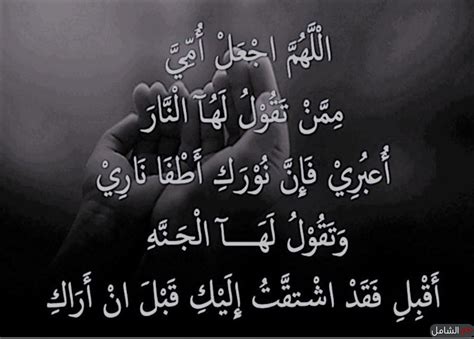 الْلَّهُمَّ اجْعَلْ أُمِّيَّ
مِمَّنْ تَقُوْلُ لَهُآ الْنَّارَ
أُعبُرِيْ فَإِنَّ نُوْرَكِ أَطْفَا نَارِيْ
وَتَقُوْلُ لَهَـــآ الْجَنَّهِ
أَقْبِلِ فَقَدْ اشْتَقَّتُ إِلَيْكِ قَبْلَ انْ أَرَاكِ
الشامل